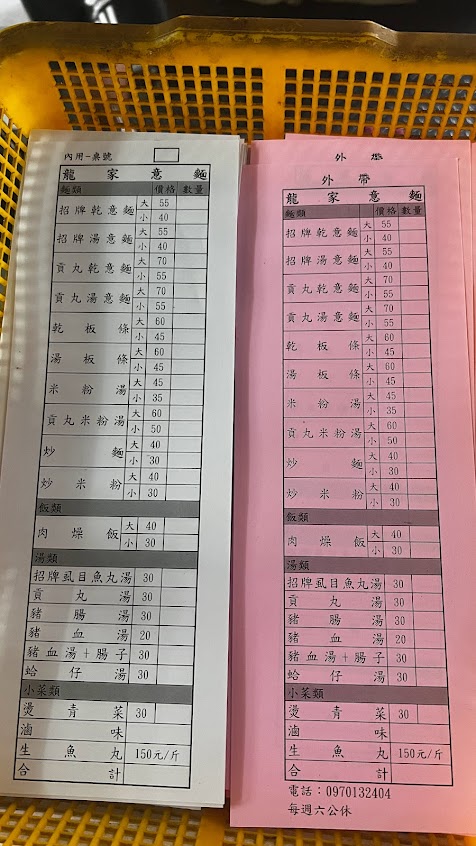 內用-桌號
龍家意麵
麵類 價格 數量
招牌乾意麵 大 55
小 40
招牌湯意麵 大 55
小 40
貢丸乾意麵 大 70
小 55
貢丸湯意麵 大 70
小 55
乾板條 大 60
小 45
湯板條 大 60
小 45
米粉湯 大 45
小 35
貢丸米粉湯 大 60
小 50
炒麵 大 40
小 30
炒米粉 大 40
小 30
飯類
肉燥飯 大 40
小 30
湯類
招牌虱目魚丸湯 30
貢丸湯 30
豬腸湯 30
豬血湯 20
豬血湯+腸子 30
蛤仔湯 30
小菜類
燙青菜 30
滷味
生魚丸 150元/斤
合計
外帶
外帶
龍家意麵
麵類 價格 數量
招牌乾意麵 大 55
小 40
招牌湯意麵 大 55
小 40
貢丸乾意麵 大 70
小 55
貢丸湯意麵 大 70
小 55
乾板條 大 60
小 45
湯板條 大 60
小 45
米粉湯 大 45
小 35
貢丸米粉湯 大 60
小 50
炒麵 大 40
小 30
炒米粉 大 40
小 30
飯類
肉燥飯 大 40
小 30
湯類
招牌虱目魚丸湯 30
貢丸湯 30
豬腸湯 30
豬血湯 20
豬血湯+腸子 30
蛤仔湯 30
小菜類
燙青菜 30
滷味
生魚丸 150元/斤
合計
電話:0970132404
每週六公休